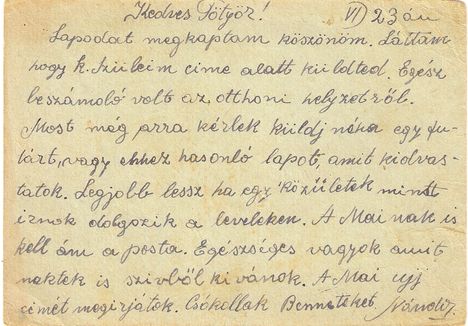 Kedves Pötyör! VI 23 án
Lapodat megkaptam köszönöm. Láttam
hogy k. szüleim cime alatt küldted. Egész
beszámoló volt az otthoni helyzetről.
Most még arra kérlek küldj néha egy fu-
tárt, vagy ehhez hasonló lapot, amit kiolvas-
tatok. Legjobb lessz ha egy közületek mint
irnok dolgozik a leveleken. A Mainak is
kell ám a posta. Egészséges vagyok amit
nektek is szivből kivánok. A Mai uj
cimét megirjátok. Csókollak Benneteket Nándi.